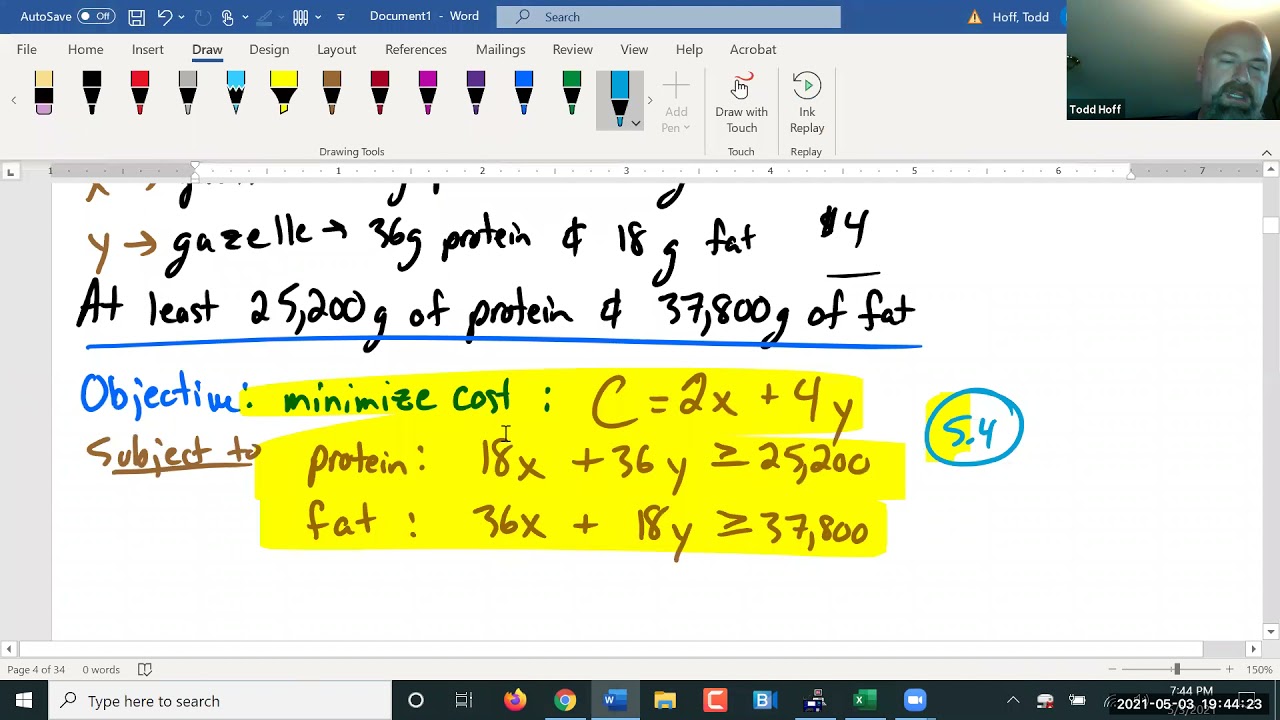 AutoSave Off Document1 - Word Search Hoff, Todd
File Home Insert Draw Design Layout References Mailings Review View Help Acrobat
Todd Hoff
Add Pen
Draw with Touch
Ink Replay
Drawing Tools Touch Replay
1 1 2 3 4 5 6 7
y → gazelle → 36g protein & 18 g fat $4
At least 25,200g of protein & 37,800g of fat
Objective: minimize cost : C = 2x + 4y
Subject to protein: 18x + 36y ≥ 25,200
5.4
fat : 36x + 18y ≥ 37,800
Page 4 of 34 0 words 150%
Type here to search
7:44 PM
2021-05-03 19:44:23